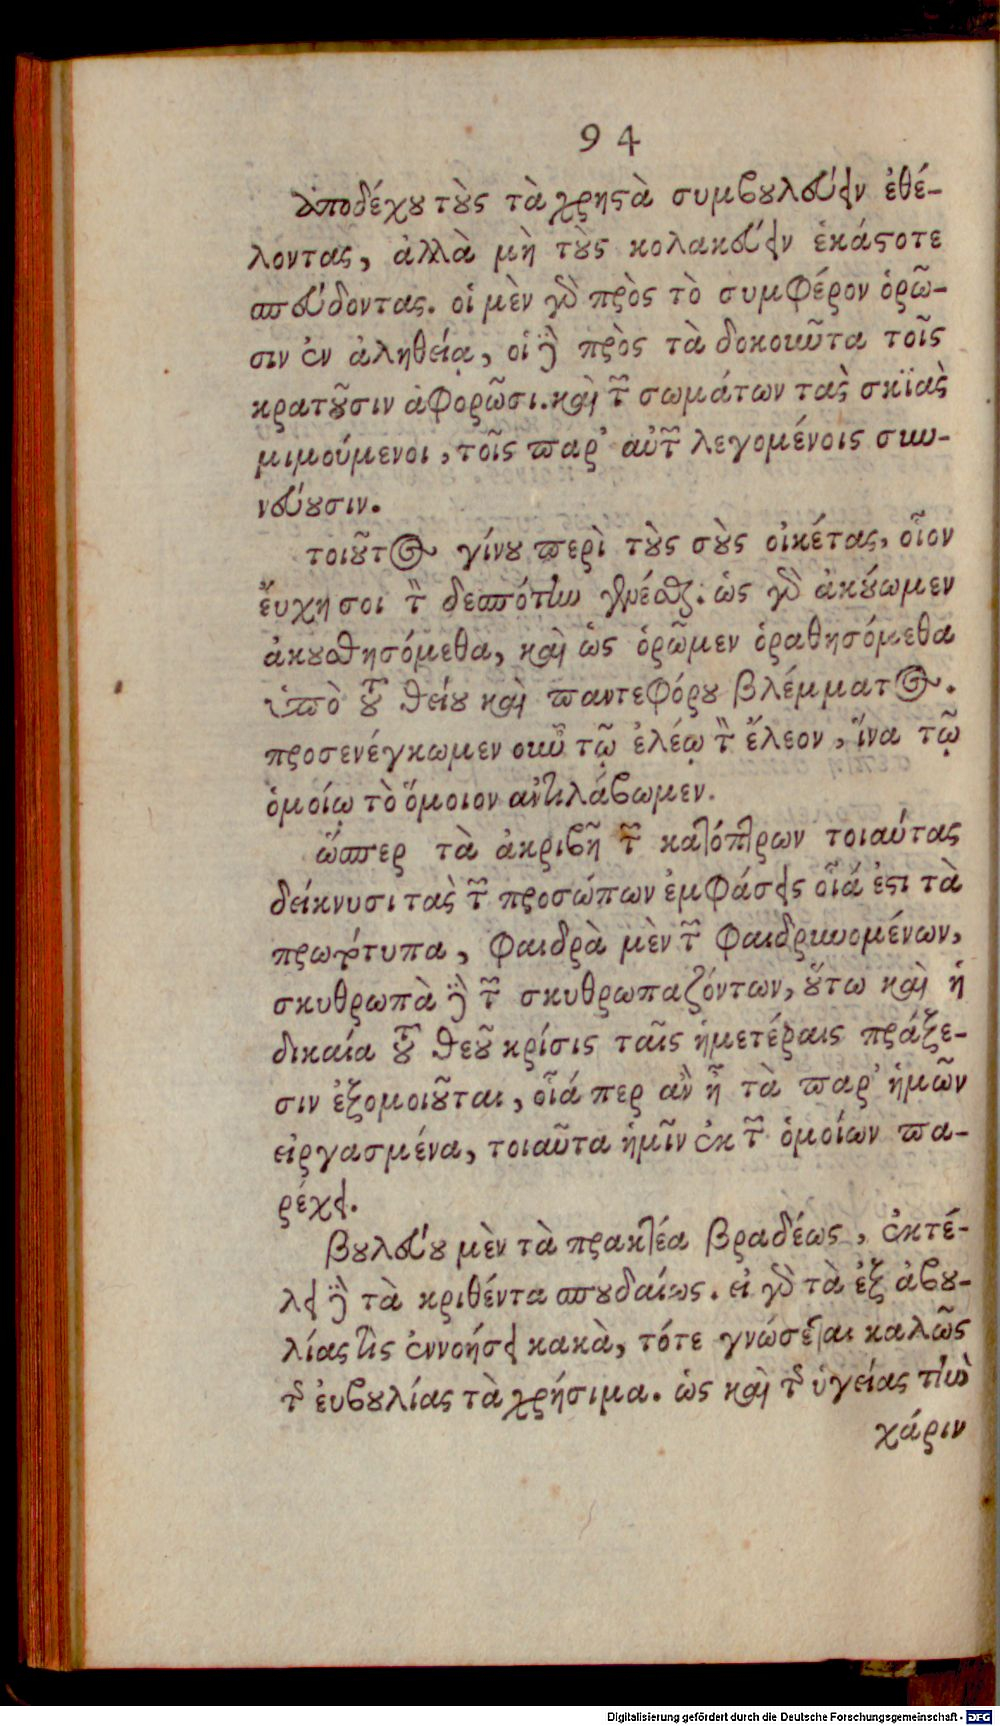 94
ἀποδέχου τοὺς τὰ χρηστὰ συμβουλεύειν ἐθέ-
λοντας, ἀλλὰ μὴ τοὺς κολακεύειν ἑκάστοτε
σπεύδοντας. οἱ μὲν γὰρ πρὸς τὸ συμφέρον ὁρῶ-
σιν ἐν ἀληθείᾳ, οἱ δὲ πρὸς τὰ δοκοῦντα τοῖς
κρατοῦσιν ἀφορῶσι. καὶ τῶν σωμάτων τὰς σκϊὰς
μιμούμενοι, τοῖς παρ' αὐτῶν λεγομένοις συν-
νεύουσιν.
τοιοῦτος γίνου περὶ τοὺς σοὺς οἰκέτας, οἷον
ἔυχῃ σοι τὸν δεσπότην γενέσθαι. ὡς γὰρ ἀκούωμεν
ἀκουσθησόμεθα, καὶ ὡς ὁρῶμεν ὁραθησόμεθα
ὑπὸ τοῦ θείου καὶ παντεφόρου βλέμματος.
προσενέγκωμεν οὖν τῷ ἐλέῳ τὸν ἔλεον, ἵνα τῷ
ὁμοίῳ τὸ ὅμοιον ἀντιλάβωμεν.
ὥσπερ τὰ ἀκριβῆ τῶν κατόπτρων τοιαύτας
δείκνυσι τὰς τῶν προσώπων ἐμφάσεις οἷά ἐστι τὰ
πρωτότυπα, φαιδρὰ μὲν τῶν φαιδρυνομένων,
σκυθρωπὰ δὲ τῶν σκυθρωπαζόντων, οὕτω καὶ ἡ
δικαία τοῦ θεοῦ κρίσις ταῖς ἡμετέραις πράξε-
σιν ἐξομοιοῦται, οἷά περ ἂν ᾖ τὰ παρ' ἡμῶν
εἰργασμένα, τοιαῦτα ἡμῖν ἐκ τῶν ὁμοίων πα-
ρέχει.
βουλεύου μὲν τὰ πρακτέα βραδέως, ἐκτέ-
λει δὲ τὰ κριθέντα σπουδαίως. εἰ γὰρ τὰ ἐξ ἀβου-
λίας τις ἐννοήσει κακὰ, τότε γνώσεται καλῶς
τῆς ἐυβουλίας τὰ χρήσιμα. ὡς καὶ τῆς ὑγείας τὴν
χάριν
Digitalisierung gefördert durch die Deutsche Forschungsgemeinschaft - DFG